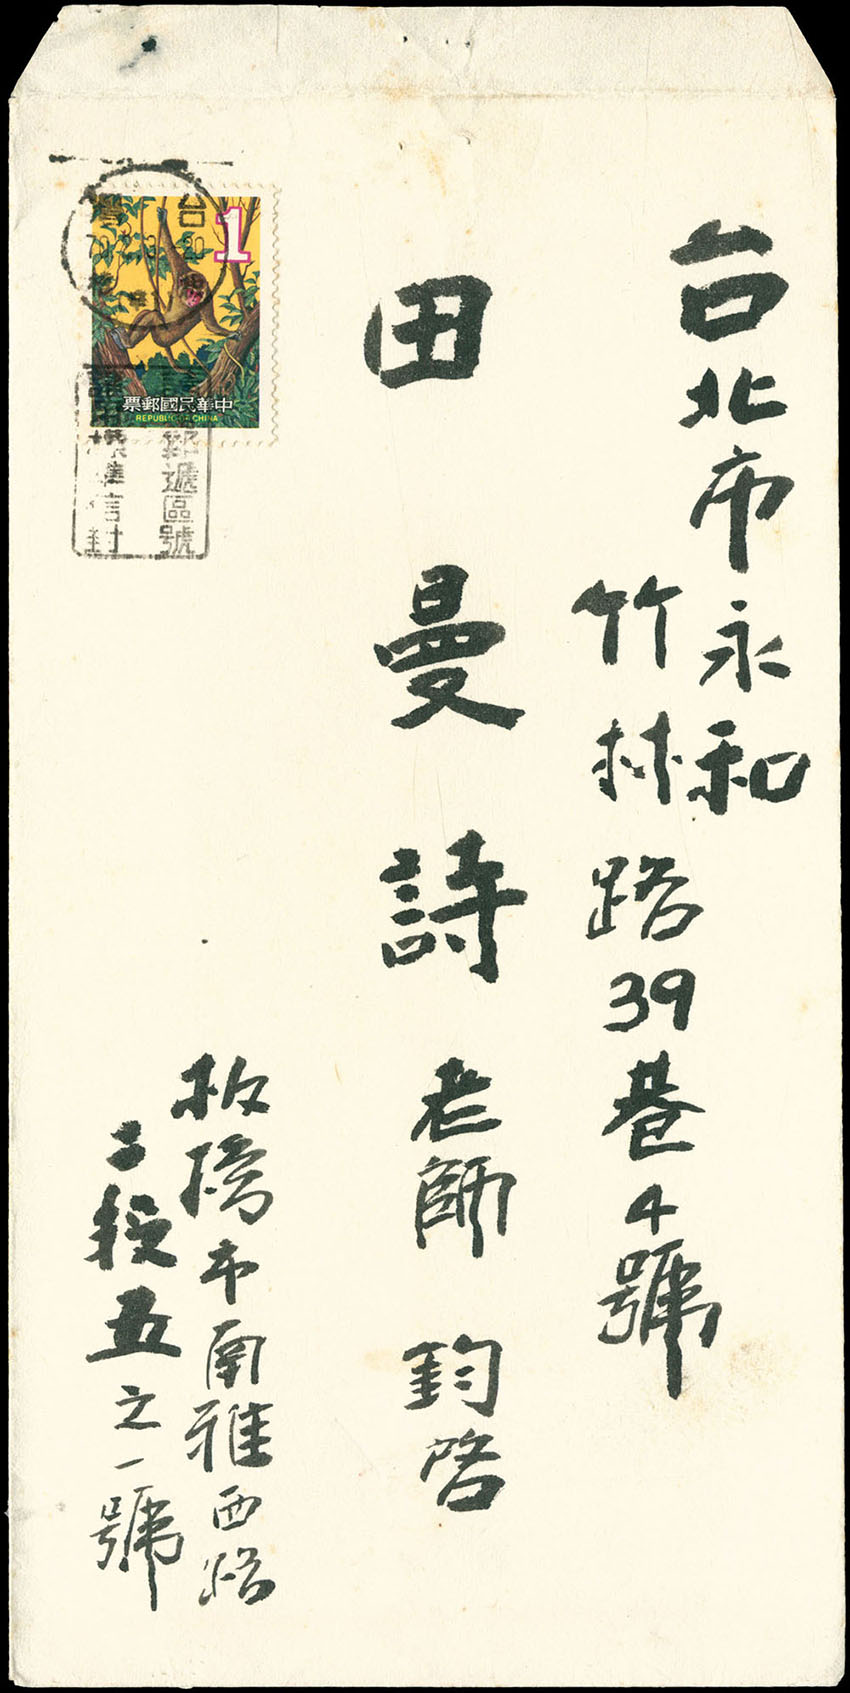 台北市永和
竹林路39巷4號
田曼詩老師 鈞啓
板橋市南雅西路
二段五之一號
1
中華民國郵票
REPUBLIC OF CHINA
郵遞區號
標準信封